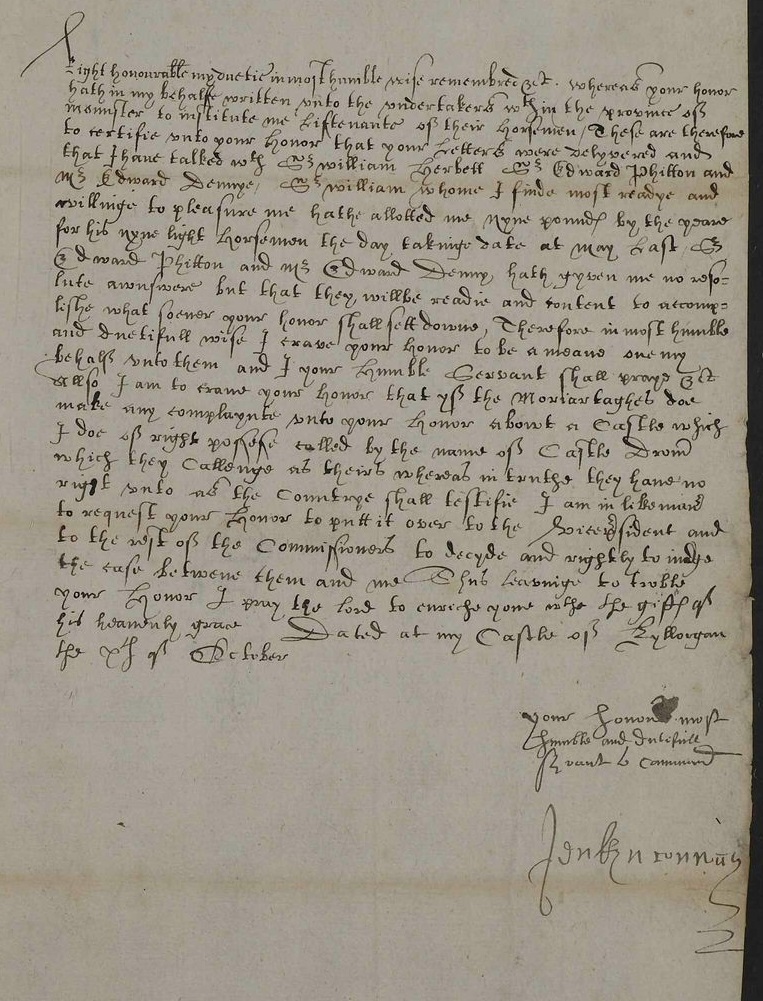 Right honourable my duetie in most humble wise remembred &ct. whereas your honor
hath in my behalfe written vnto the vndertakers wth in the province of
mounster to institute me liftenante of their horsemen, These are therefore
to certifie vnto your honor that your letters were delyvered and
that I haue talked wth Sr william Herbett Sr Edward Phitton and
mr Edward Dennye, Sr william whome I finde most readye and
willinge to pleasure me hathe allotted me nyne pounds by the yeare
for his nyne light horsemen the day takinge date at may last, Sr
Edward Phitton and mr Edward Denny, hath gyven me no reso-
lute awnswere but that they willbe readie and content to accomp-
lishe what soever your honor shall sett downe, Therefore in most humble
and duetifull wise I crave your honor to be a meane one my
behalf vnto them and I your humble Servant shall praye &ct
Allso I am to crave your honor that yf the Moriartaghes doe
make any complaynte vnto your honor abowt a Castle which
I doe of right possesse called by the name of Castle Drom
which they Callenge as theirs whereas in truthe they haue no
right vnto as the Countrye shall testifie I am in likewise
to request your honor to putt it over to the vicepresident and
to the rest of the Commissioners to decyde and rightly to iudge
the case betwene them and me Thus leavinge to troble
your Honor I pray the lord to enriche youe wthe the gifts of
his heavenly grace Dated at my Castle of Kyllorgan
the xth of October
your honors most
humble and dutefull
servant to command
Jenkyn conway